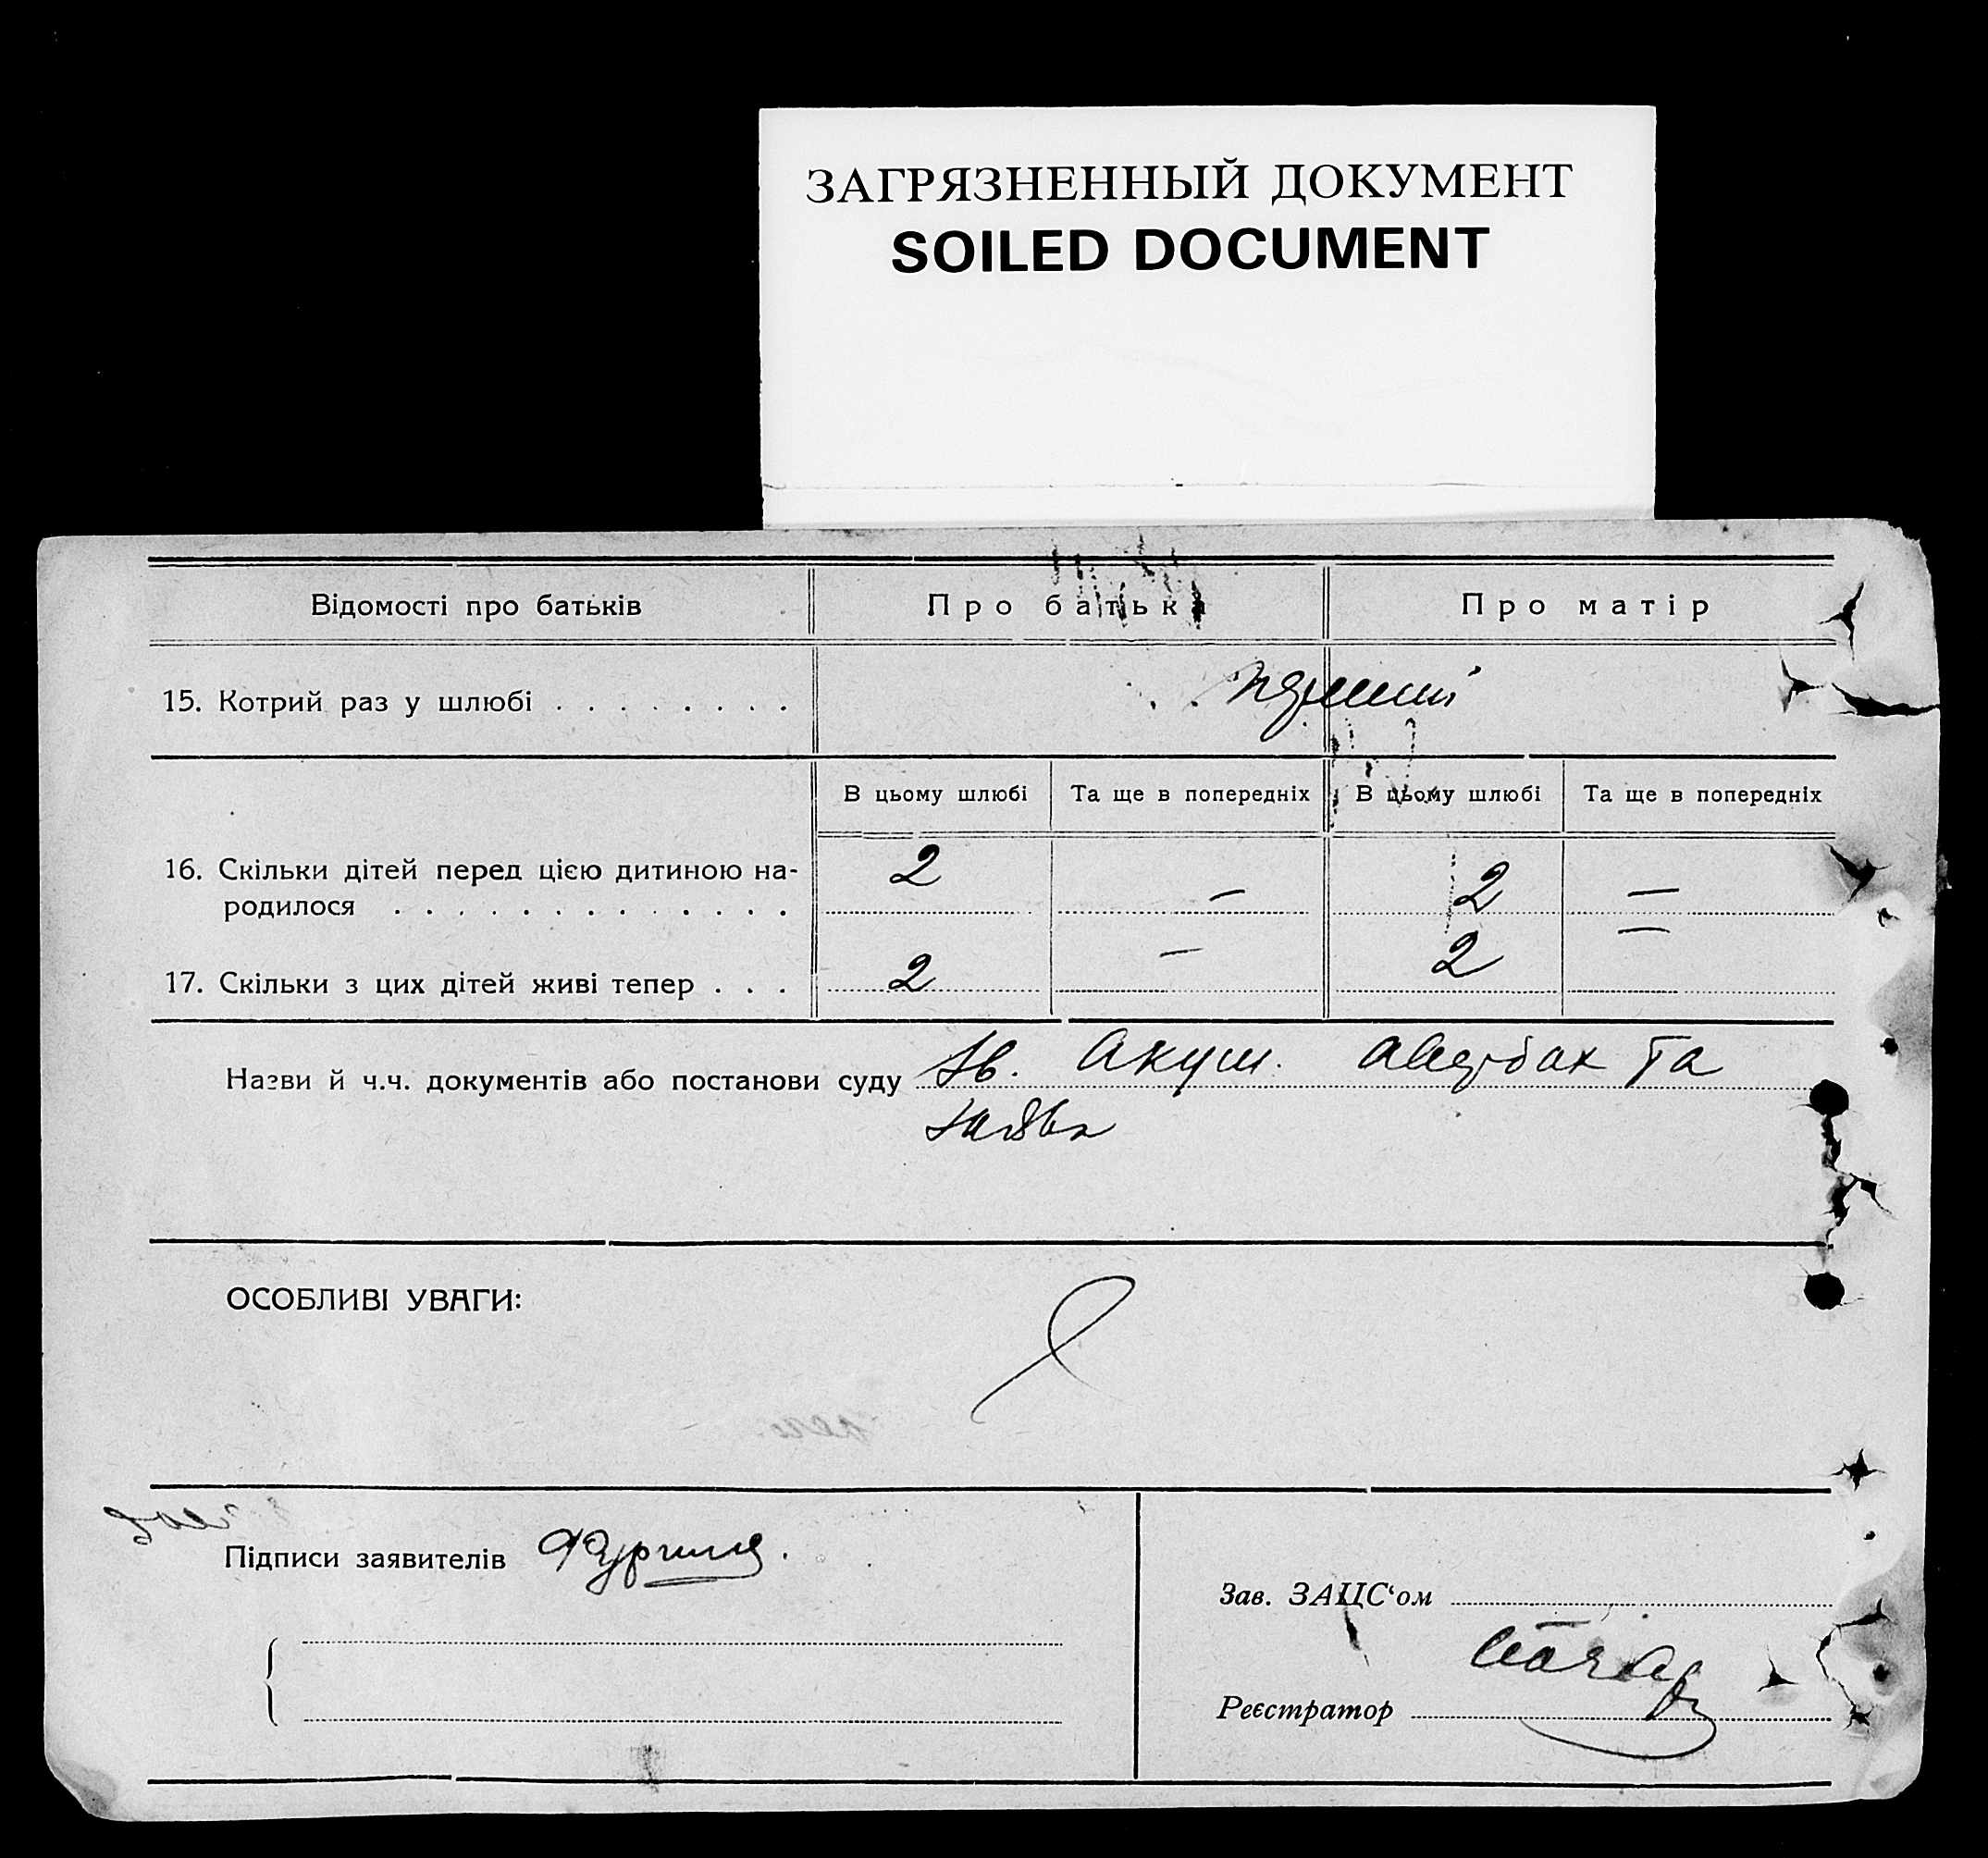 ЗАГРЯЗНЕННЫЙ ДОКУМЕНТ
SOILED DOCUMENT
Відомості про батьків Про батька Про матір
15. Котрий раз у шлюбі . . . . . . . .
В цьому шлюбі Та ще в попередніх В цьому шлюбі Та ще в попередніх
16. Скільки дітей перед цією дитиною на- 2 — 2 —
родилося . . . . . . . . . . . . .
17. Скільки з цих дітей живі тепер . . . 2 — 2 —
Назви й ч.ч. документів або постанови суду Зв. Акуш. Авербах та
заява
ОСОБЛИВІ УВАГИ:
Підписи заявителів
Зав. ЗАЦС‘ом
Реєстратор